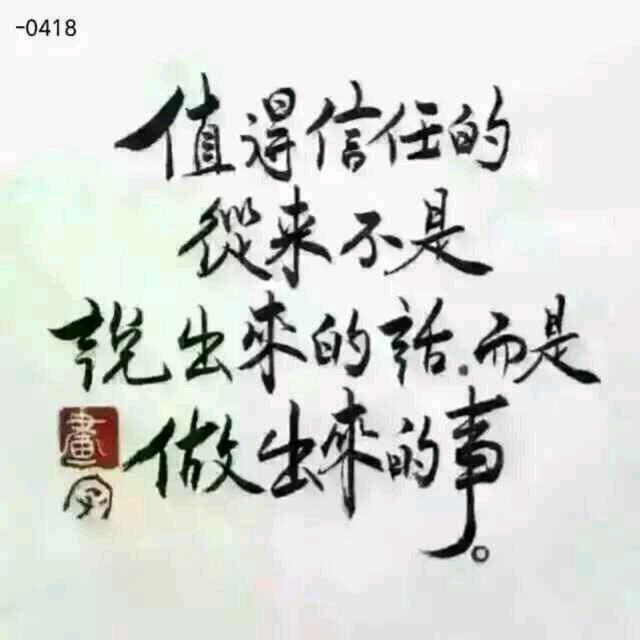 -0418
值得信任的
從来不是
説出來的話.而是
做出來的事。
畫
字